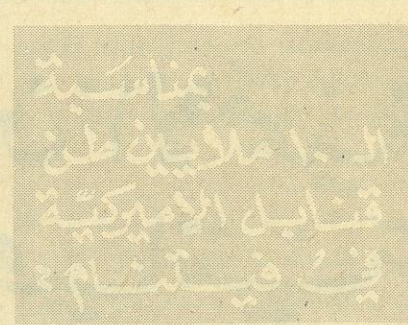 بمناسبة
الـ ١٠ ملايين طن
قنابل الاميركيّة
في فيتنام